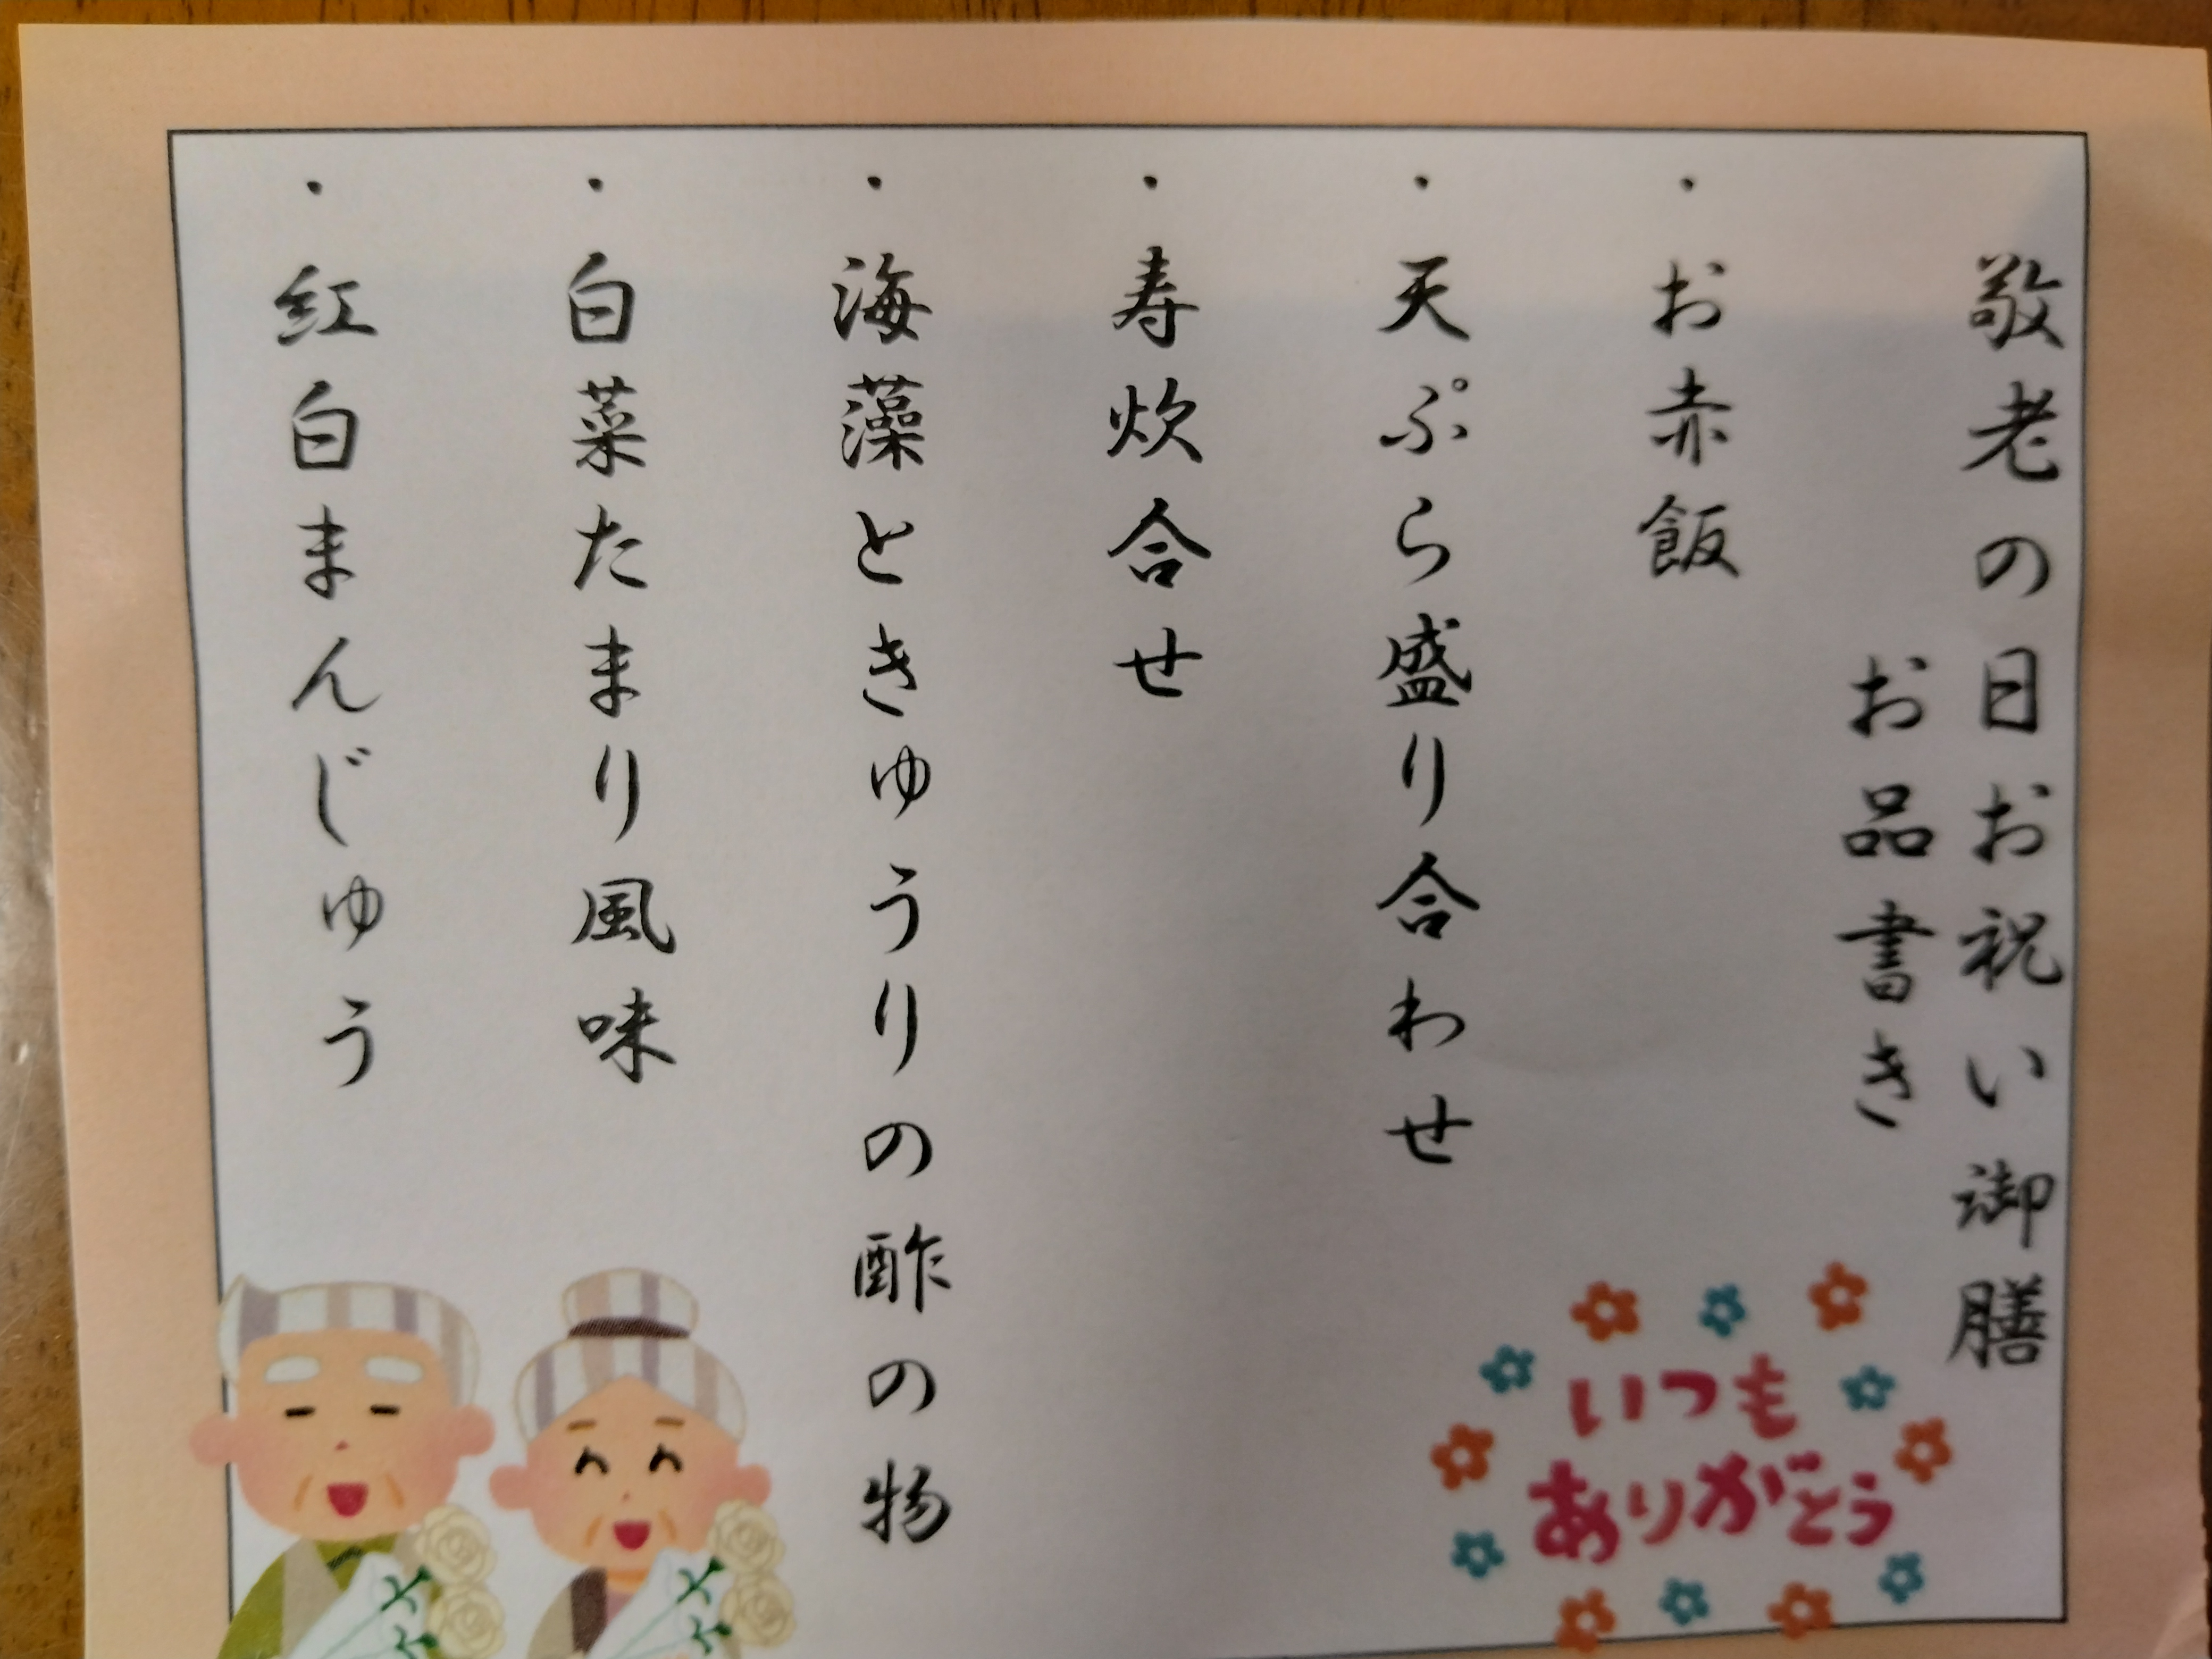 敬老の日お祝い御膳
お品書き
・お赤飯
・天ぷら盛り合わせ
・寿炊合せ
・海藻ときゅうりの酢の物
・白菜たまり風味
・紅白まんじゅう
いつも
ありがとう